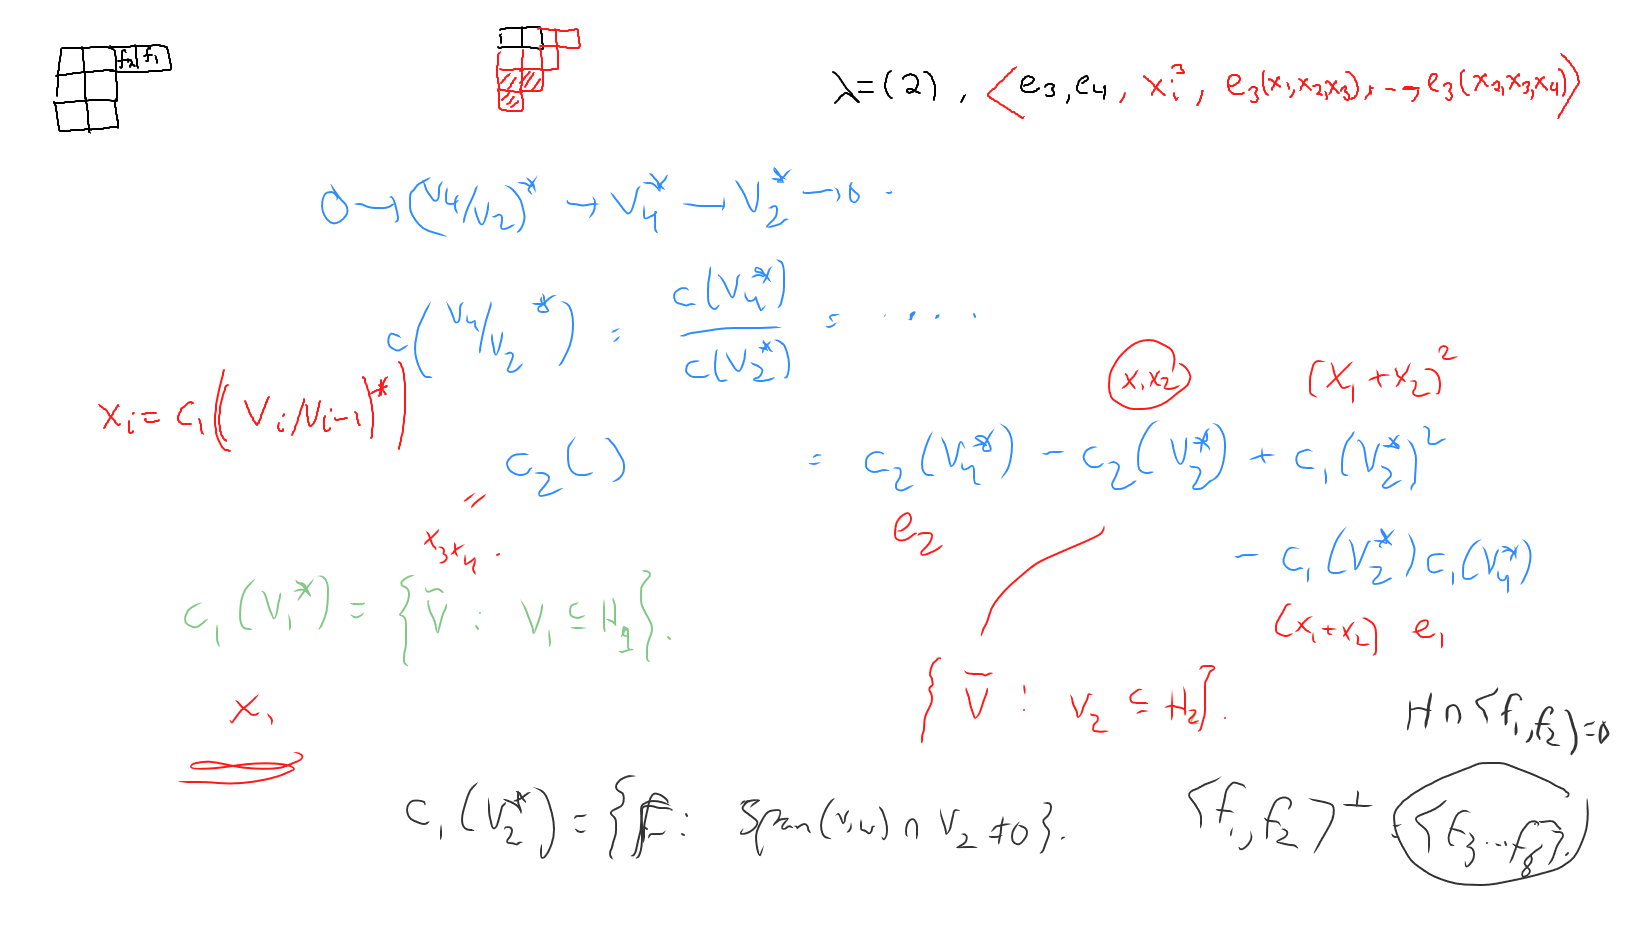 f₂ f₁
λ=(2), ⟨e₃, e₄, xᵢ³, e₃(x₁,x₂,x₃), ..., e₃(x₂,x₃,x₄)⟩
0 → (V₄/V₂)* → V₄* → V₂* → 0.
c(V₄/V₂*) = c(V₄*) / c(V₂*) = ....
xᵢ = c₁((Vᵢ/Vᵢ₋₁)*)
x₁x₂ (x₁+x₂)²
c₂( ) = c₂(V₄*) - c₂(V₂*) + c₁(V₂*)²
= x₃x₄. e₂
- c₁(V₂*) c₁(V₄*)
(x₁+x₂) e₁
c₁(V₁*) = { V̄ : V₁ ⊆ H₁ }.
{ V̄ : V₂ ⊆ H₂ }.
x₁
H ∩ ⟨f₁, f₂⟩ = 0
c₁(V₂*) = { F : Span(v,w) ∩ V₂ ≠ 0 }.
⟨f₁, f₂⟩^⊥ = ⟨f₃ ... f₈⟩.